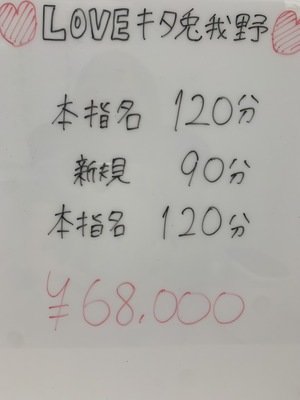 LOVEキタ兎我野
本指名 120分
新規 90分
本指名 120分
¥68.000